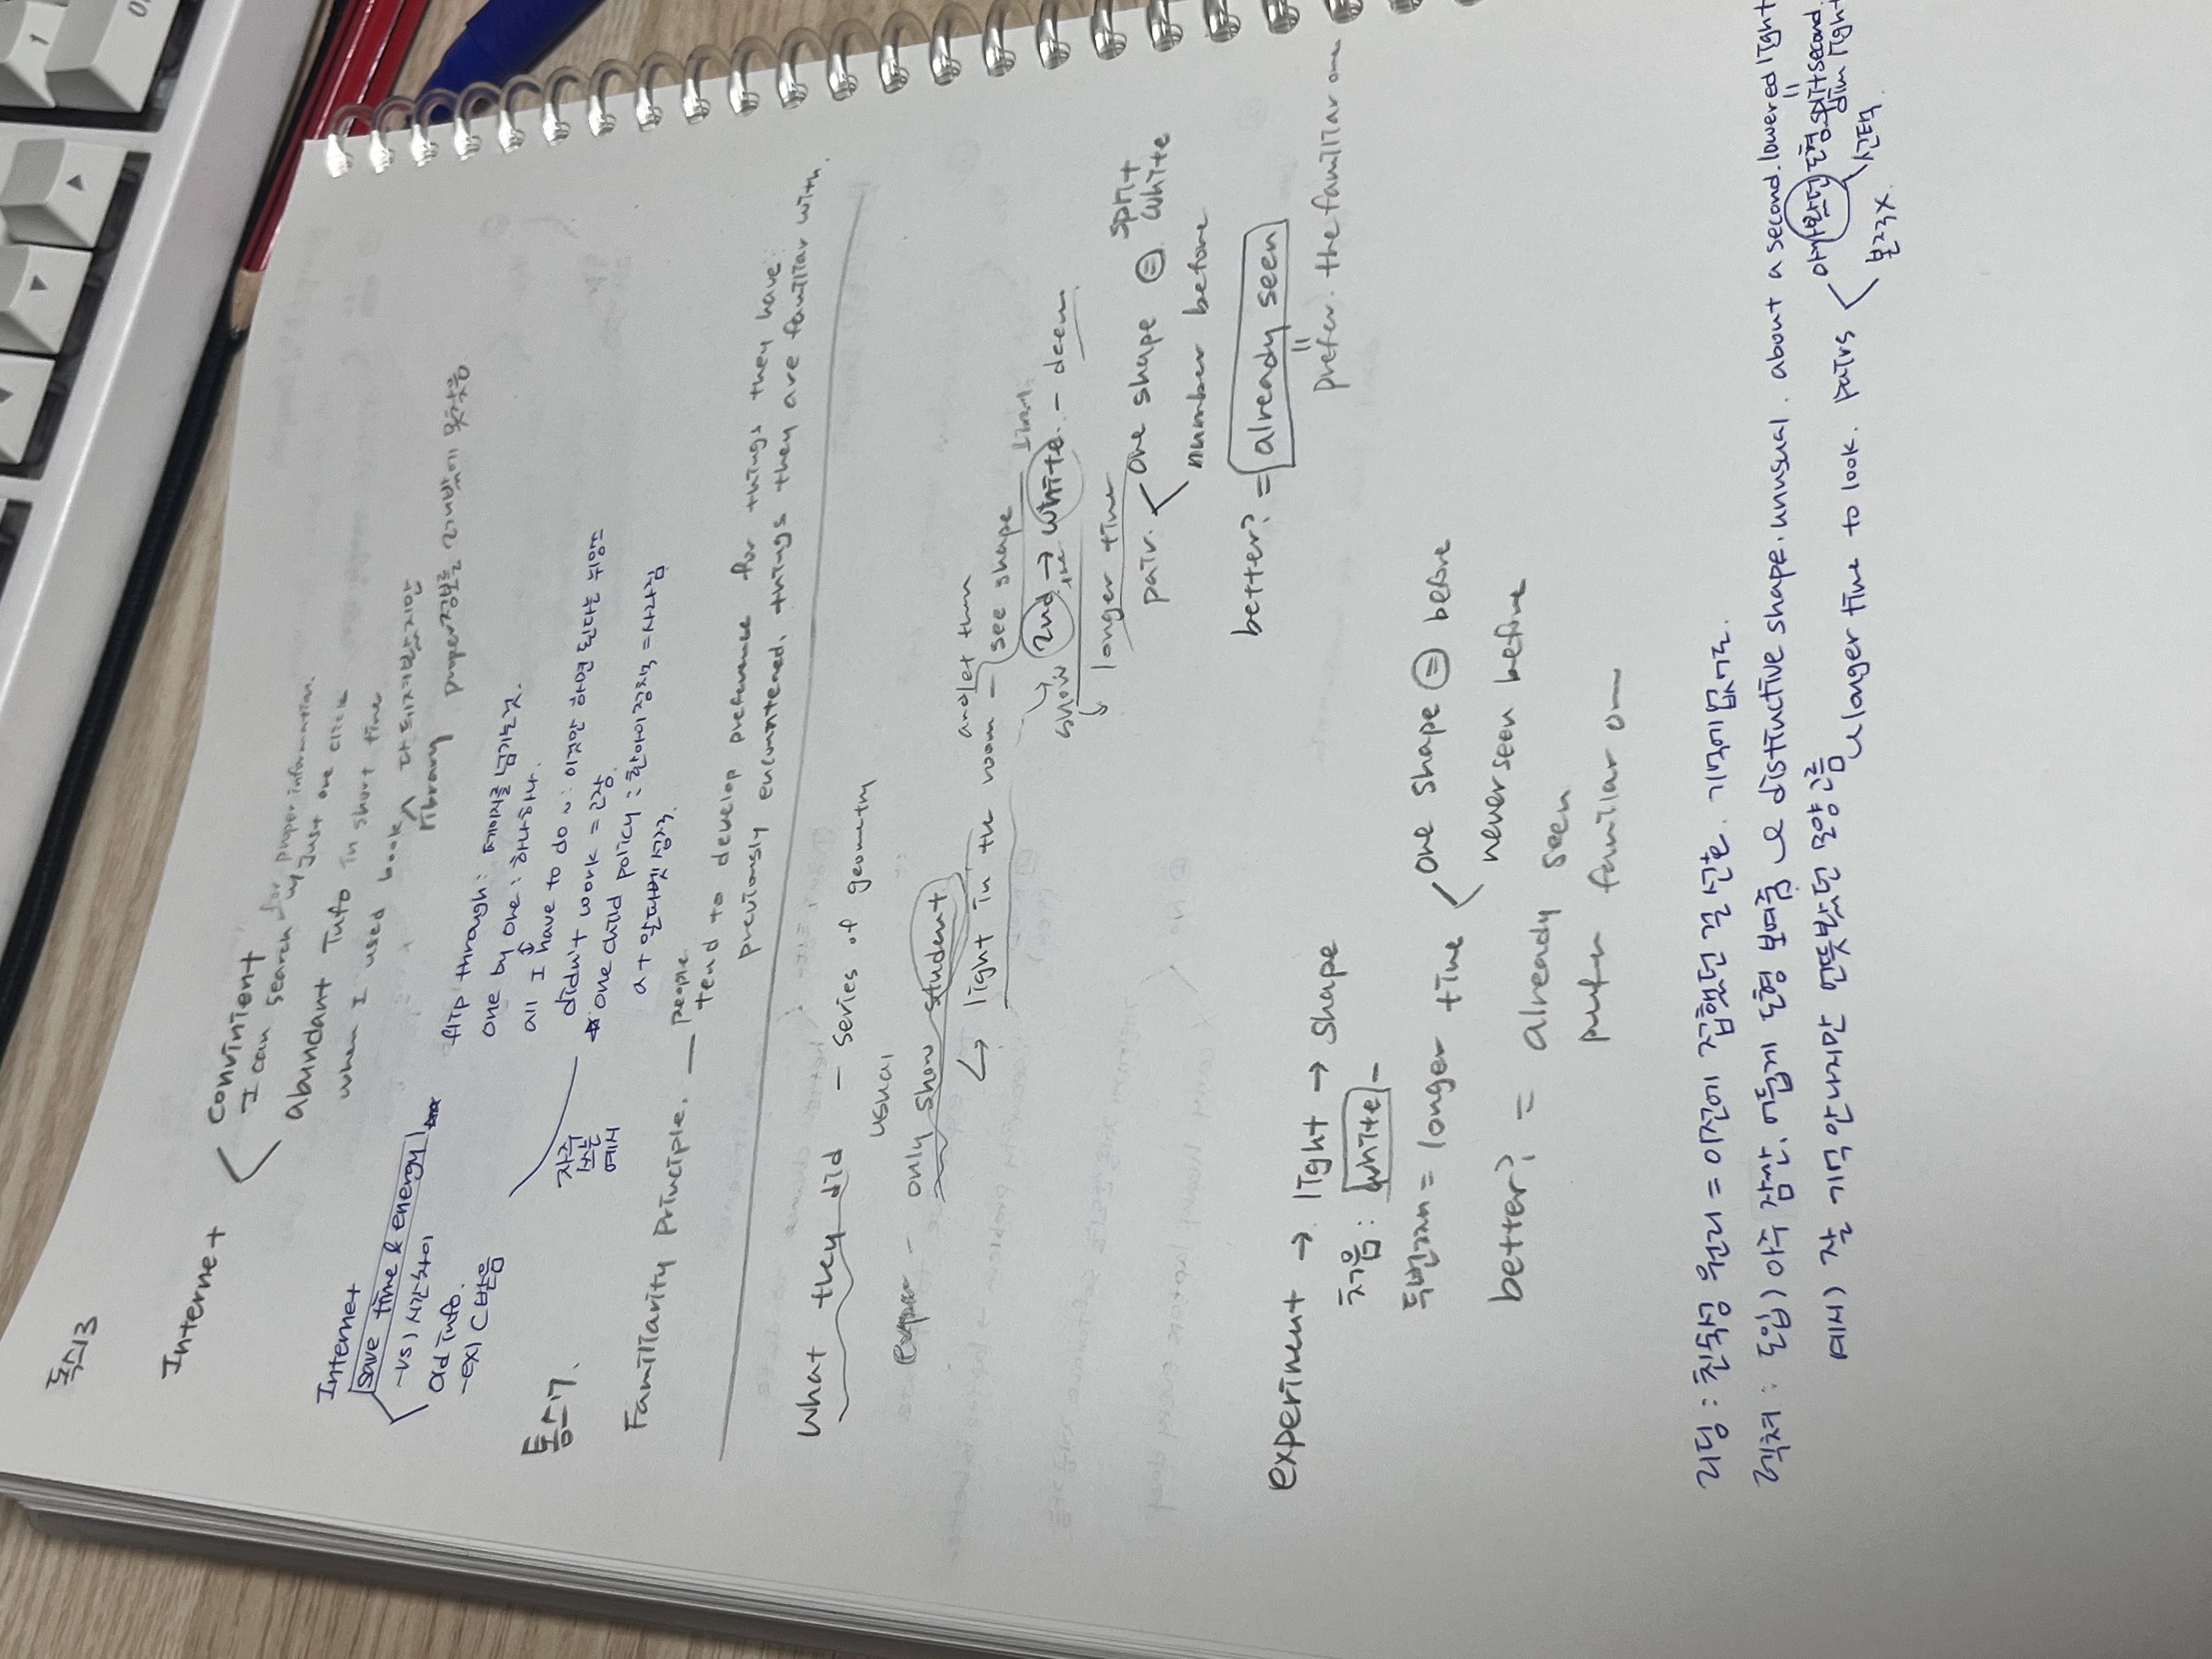 독스13
Internet
convinient
I can search for proper information
w/ just one click
abundant info in short time
when I used book
다 뒤져야 하지만
library
Internet
save time & energy
-vs) 시간차이
old info.
-ex) C 받음
flip through : 페이지를 넘기는것.
one by one : 하나하나.
all I have to do ~ : 이것만 하면 된다는 뉘앙스
didn't work = 고장.
one child policy : 한아이정책 = 사라짐
a + 알파벳 성적.
자주
보는
에서
통스17.
Familiarity principle. — people
tend to develop preference for things they have
previously encountered. things they are familiar with.
What they did - series of geometry
usual
only show student.
light in the room - see shape
and let them
show 2nd → white. - deem
longer time
pair. one shape = split white
number before
better? = already seen
=
prefer. the familiar one
experiment → light → shape
처음 : white -
두번째 = longer time
one shape = before
never seen before
better? = already seen
prefer familiar one
리딩 : 친숙성 원리 = 이전에 접했던 것을 선호. 기억에 남니?
렉쳐 : 실험) 아주 잠깐, 어둡게 도형 보여줌 distinctive shape. unusual. about a second. lowered light
longer time to look. pairs
아까봤던 도형. split second.
= dim light
본적X
선택.